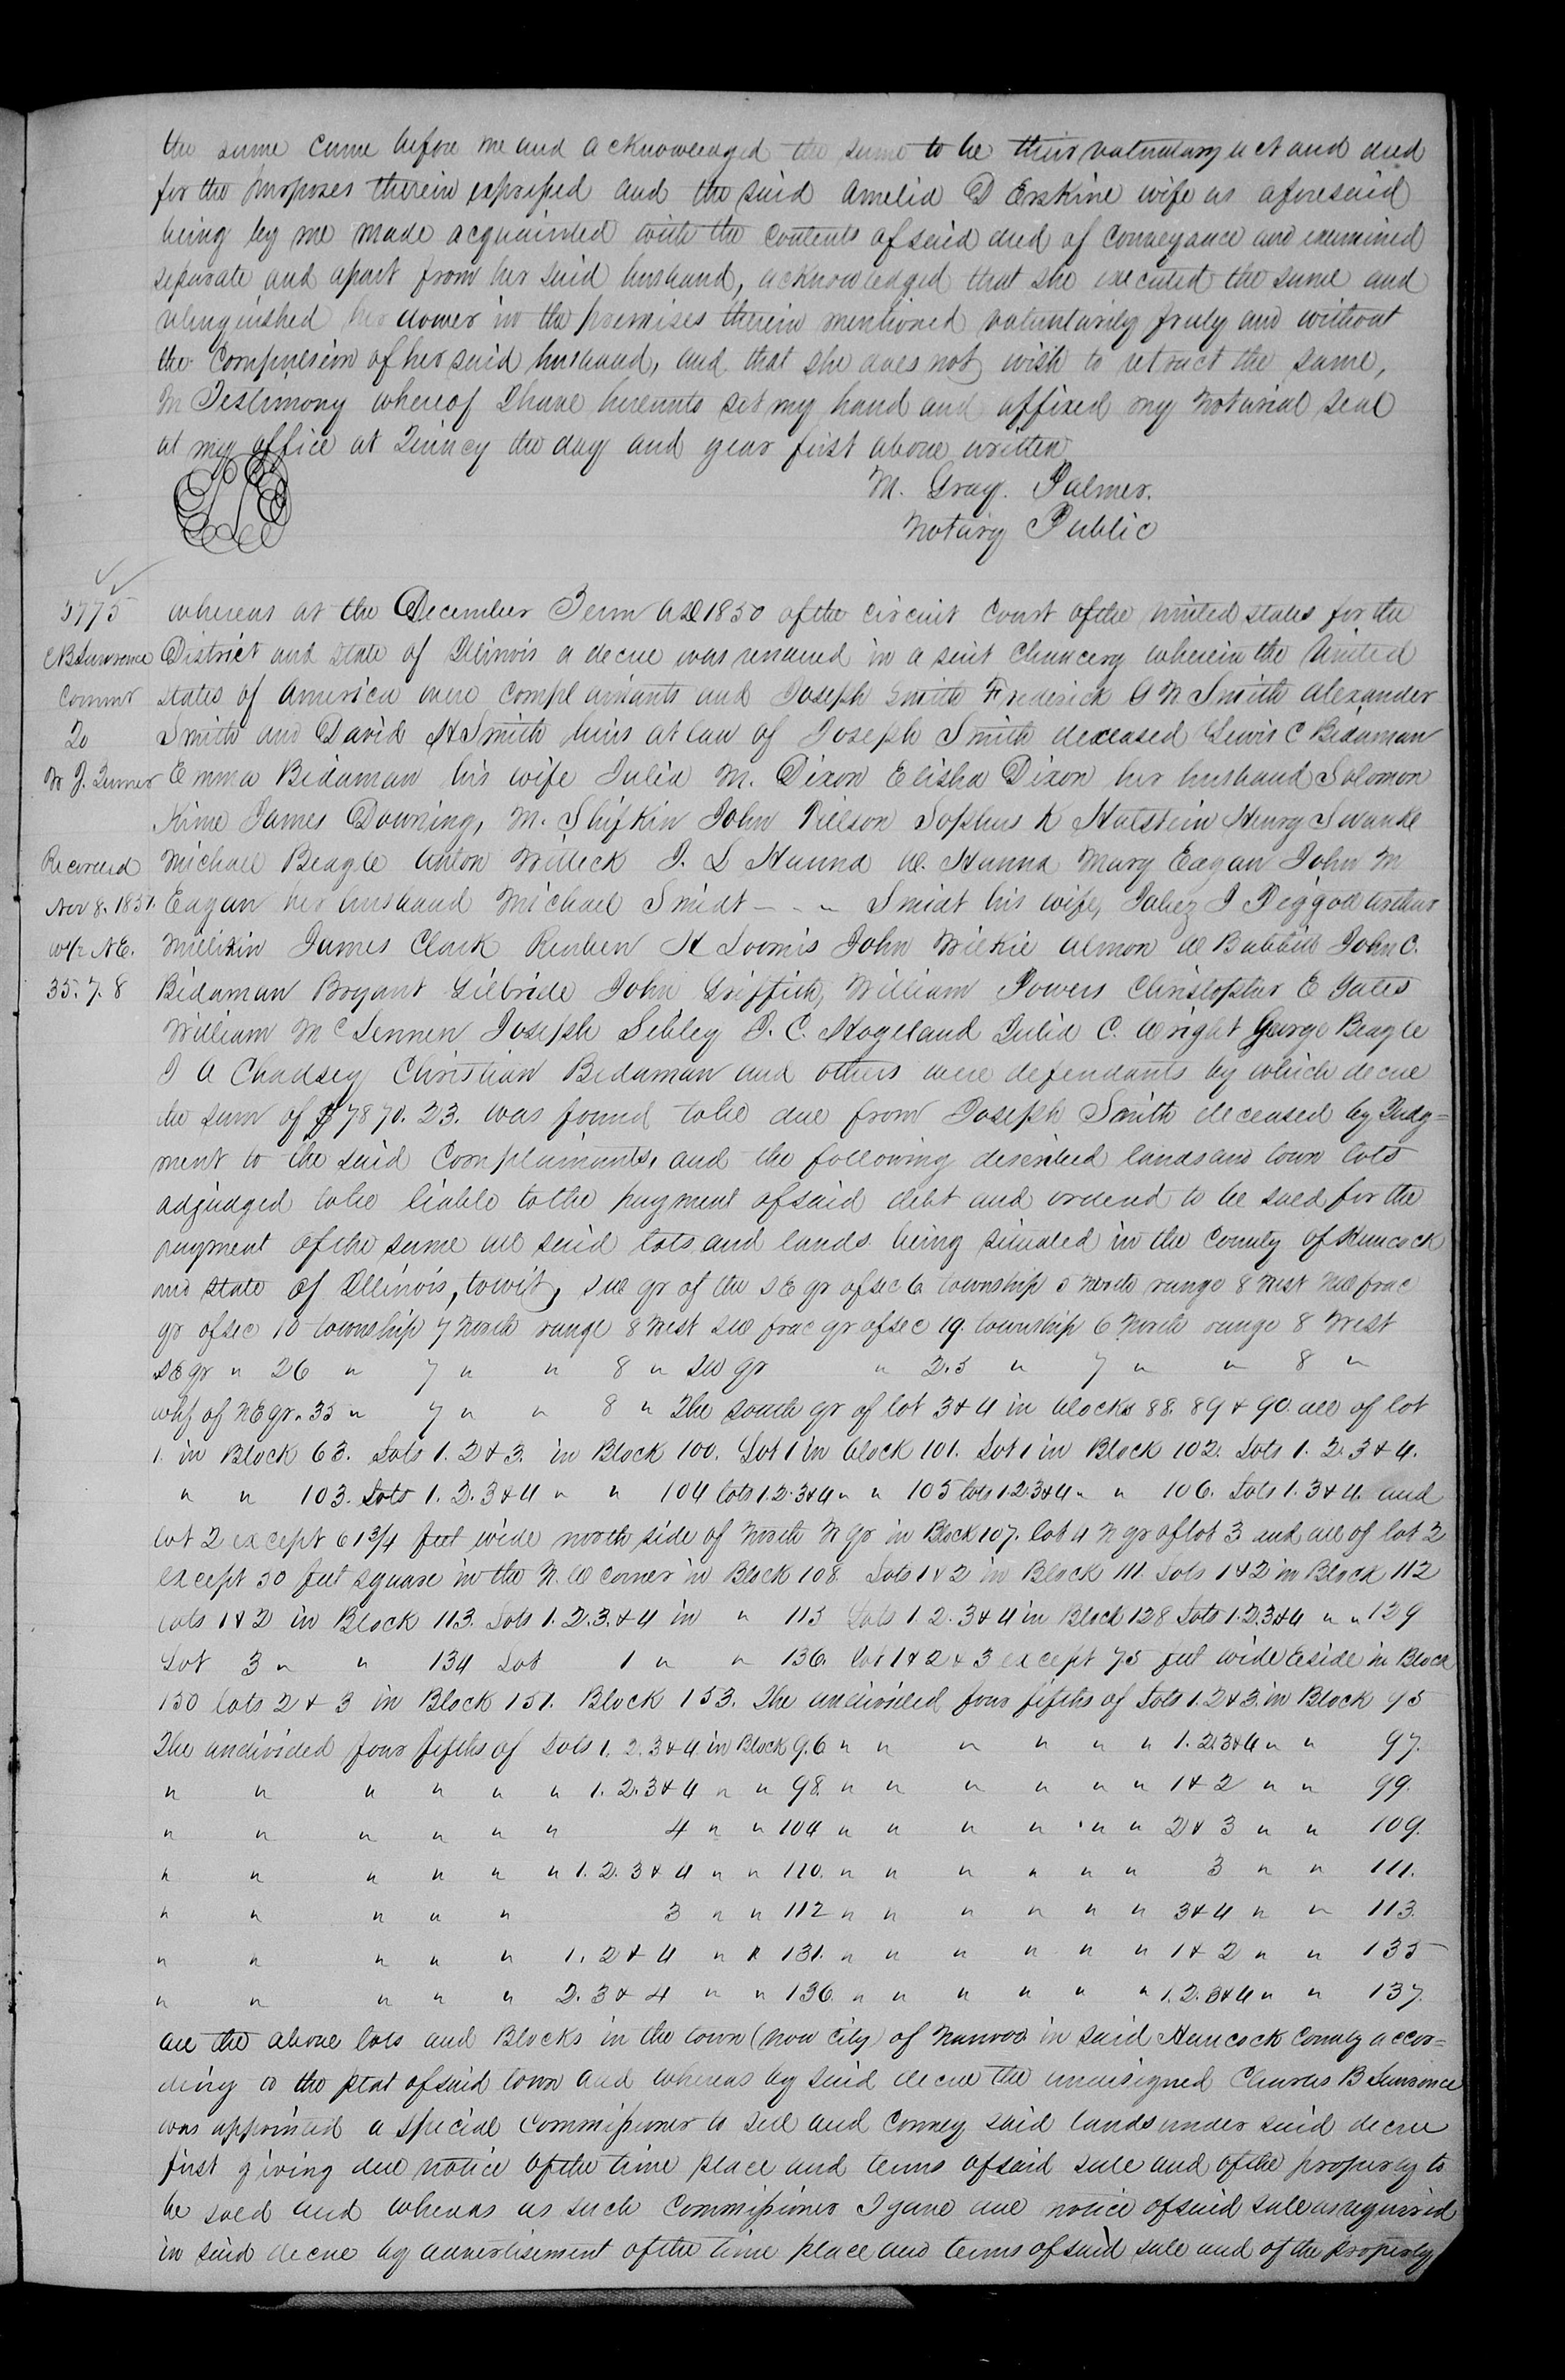 the same came before me and acknowledged the same to be their voluntary act and deed
for the purposes therein expressed and the said Amelia D Erskine wife as aforesaid
being by me made acquainted with the contents of said deed of conveyance and examined
separate and apart from her said husband, acknowledged that she executed the same and
relinquished her dower in the premises therein mentioned voluntarily freely and without
the compulsion of her said husband, and that she does not wish to retract the same,
In Testimony whereof I have hereunto set my hand and affixed my notarial seal
at my office at Quincy the day and year first above written
M. Gray. Palmer.
Notary Public
5775
C B Lawrence
Commr
To
W J. Turner
Recorded
Nov 8. 1851.
w1/2 N.E.
35. 7. 8
whereas at the December Term AD 1850 of the circuit Court of the united states for the
District and state of Illinois a decree was rendered in a suit Chancery wherein the United
states of America were complainants and Joseph Smith Frederick G W Smith Alexander
Smith and David H Smith heirs at law of Joseph Smith deceased Lewis C Bidaman
Emma Bidaman his wife Julia M. Dixon Elisha Dixon her husband Solomon
James Downing, M. Shifkin John Sophus K Henry
Michael Beagle Anton J. L Hanna W. Hanna Mary Eagan John M
Eagan her husband Michael Smidt - - - Smidt his wife, Jabez J Arthur
Millikin James Clark Reuben H Loomis John Wilkie Almon W Babbitt John C.
Bidaman Bryant Gilbride John Griffith, William Powers Christopher E Yates
William McLennen Joseph Sibley P. C. Hogeland Julia C. Wright George Beagle
J A Chadsey Christian Bidaman and others were defendants by which decree
the sum of $7870.23. was found to be due from Joseph Smith deceased by Judg=
ment to the said Complainants, and the following described lands and town lots
adjudged to be liable to the payment of said debt and ordered to be sold for the
payment of the same all said lots and lands being situated in the County of Hancock
and state of Illinois, towit, SW qr of the SE qr of sec 6 township 5 North range 8 West NW frac
qr of sec 10 township 7 North range 8 West SW frac qr of sec 19. township 6 North range 8 West
SE qr " 26 " 7 " " 8 " SW qr " 25 " 7 " " 8 "
whf of NE qr. 35 " 7 " " 8 " The south qr of lot 3 & 4 in blocks 88. 89 & 90. all of lot
1. in Block 63. Lots 1. 2 & 3. in Block 100. Lot 1 in block 101. Lot 1 in Block 102. Lots 1. 2. 3 & 4.
" " 103. Lots 1. 2. 3 & 4 " " 104 lots 1. 2. 3 & 4 " " 105 lots 1 2 3 & 4 " " 106. Lots 1. 3 & 4. and
lot 2 except 61 3/4 feet wide north side of North N qr in Block 107. lot 4 N qr of lot 3 and all of lot 2
except 50 feet square in the N. W corner in Block 108 Lots 1 & 2 in Block 111 Lots 1 & 2 in Block 112
Lots 1 & 2 in Block 113. Lots 1. 2. 3. & 4 in " 115 Lots 1. 2. 3 & 4 in Block 128 Lots 1. 2. 3 & 4 " " 129
Lot 3 " " 134 Lot 1 " " 136. lot 1 & 2 & 3 except 75 feet wide E side in Block
150 lots 2 & 3 in Block 151. Block 153. The undivided four fifths of Lots 1. 2 & 3. in Block 95
The undivided four fifths of Lots 1. 2. 3 & 4 in Block 96 " " " " " " 1. 2. 3 & 4 " " 97.
" " " " " " 1. 2. 3 & 4 " " 98. " " " " " " 1 & 2 " " 99.
" " " " " " 4 " " 104 " " " " " " 2 & 3 " " 109.
" " " " " " 1. 2. 3 & 4 " " 110. " " " " " " 3 " " 111.
" " " " " 3 " " 112 " " " " " " 3 & 4 " " 113.
" " " " " 1. 2 & 4 " " 131. " " " " " " 1 & 2 " " 135
" " " " " 2. 3 & 4 " " 136. " " " " " " 1. 2. 3 & 4 " " 137.
all the above lots and Blocks in the town (now city) of Nauvoo in said Hancock County accor=
ding to the plat of said town and whereas by said decree the undersigned Charles B Lawrence
was appointed a special commissioner to sell and convey said lands under said decree
first giving due notice of the time place and terms of said sale and of the property to
be sold and whereas as such commissioner I gave due notice of said sale as required
in said decree by advertisement of the time place and terms of said sale and of the property